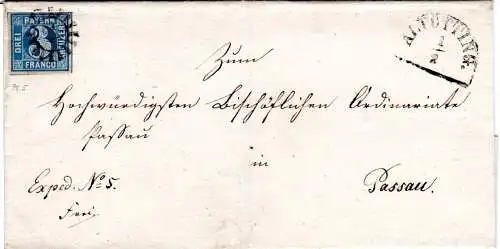 BAYERN
DREI
KREUZER
FRANCO
3
ALTÖTTING.
Zum
Hochwürdigsten Bischöflichen Ordinariate
Passau
in
Exped. No 5.
Passau.
Frei